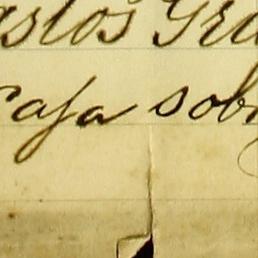 astos Gra
caja sob